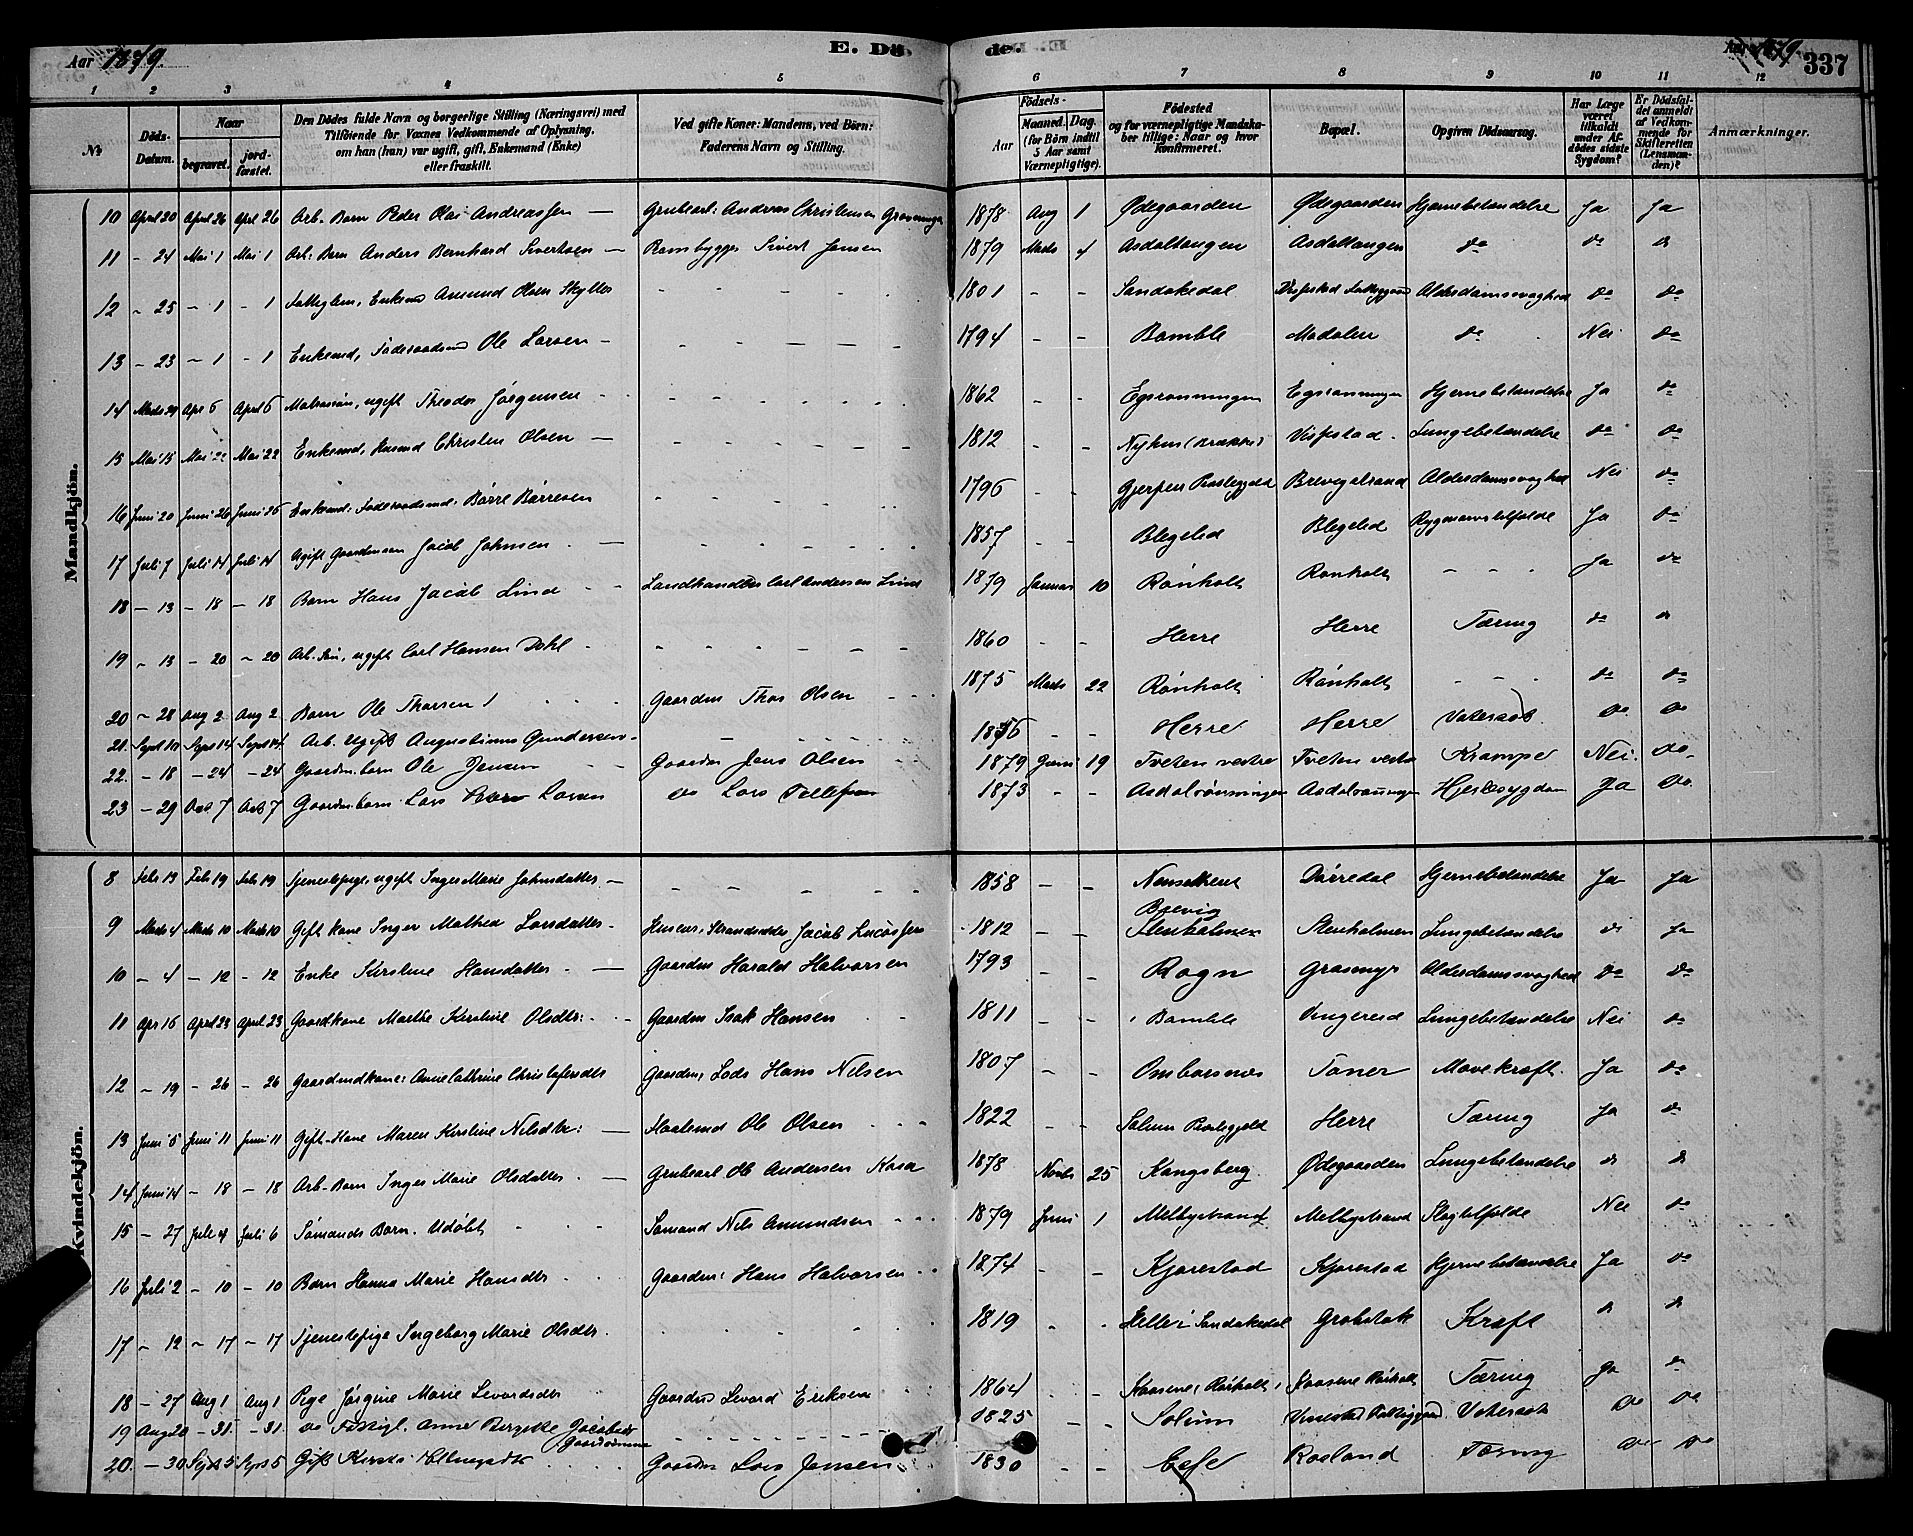 Aar 1879. E. Dö- de. Aar 1879. 337
1 2 3 4 5 6 7 8 9 10 11 12
No Döds-Datum. Naar begravet. jordfæstet. Den Dödes fulde Navn og borgerlige Stilling (Næringsvei) med Tilföiende for Voxnes Vedkommende af Oplysning, om han (hun) var ugift, gift, Enkemand (Enke) eller fraskilt. Ved gifte Koner: Mandens, ved Börn: Faderens Navn og Stilling. Födsels- Aar Maaned. Dag. (for Börn indtil 5 Aar samt Værnepligtige). Födested og for værnepligtige Mandskaber tillige: Naar og hvor konfirmeret. Bopæl. Opgiven Dödsaarsag. Har Læge været tilkaldt under Afdödes sidste Sygdom? Er Dödsfaldet anmeldt af Vedkommende for Skifteretten (Lensmanden)? Anmærkninger.
Mandkjön.
10 April 20 April 26 April 26 Arb. Barn Peder Olai Andreassen — Grubearb. Andreas Christensen 1878 Aug 1 Ødegaarden Ødegaarden Hjernebetændelse Ja Ja
11 - 24 Mai 1 Mai 1 Arb. Barn Anders Bernhard Sivertsen — Sivert Jensen 1879 Marts 4 Asdaltangen Asdaltangen do do do
12 - 25 - 1 - 1 Enkemd Amund Olsen 1801 - - Sandøkedal Alderdomssvaghed do do
13 - 23 - 1 - 1 Enkemd, Føderaadsmd Ole Larsen - 1794 - - Bamble do Nei do
14 Marts 29 Apr 6 April 6 ugift Theodor Jørgensen 1862 - - Egsrønningen Egsrønningen Hjernebetændelse Ja do
15 Mai 15 Mai 22 Mai 22 Enkemd, Husmd Christen Olsen — 1812 - - Lungebetændelse do do
16 Juni 20 Juni 26 Juni 26 Enkemd: Føderaadsmd: Børre Børresen 1796 - - Gjerpen Præstegjeld Alderdomssvaghed Nei do
17 Juli 7 Juli 14 Juli 14 Ugift Gaardmsøn Jacob Johnsen — 1857 - - Blegelid Blegelid Ja do
18 - 13 - 18 - 18 Barn Hans Jacob Lind Landhandler Carl Andersen Lind 1879 Januar 10 Rønholt Rønholt - - - Ja do
19 - 13 - 20 - 20 ugift Carl Hansen Dahl 1860 - - Herre Herre Tæring do do
20 - 28 Aug 2 Aug 2 Barn Ole Thorsen Gaardm Thor Olsen 1875 Marts 22 Rønholt Rønholt - - do do
21 Sept 10 Sept 14 Sept 14 Arb. Ugift Augustinus Gundersen - Herre Herre Vatersot do do
22 - 18 - 24 - 24 Gaardm.barn Ole Jensen Gaardm Jens Olsen 1879 Juni 19 Tveten vestre Tveten vestre Krampe Nei do
23 - 29 Oct 7 Oct 7 Gaardm.barn Lars Larsen do Lars Tellefsen 1873 - - Asdalrønningen Asdalrønningen Hjertesygdom Ja do
Kvindekjön.
8 Febr 13 Feb 19 Febr 19 Tjenestepige, ugift Inger Marie Johnsdatter — 1858 - - Dørredal Hjernebetændelse Ja Ja
9 Marts 4 Marts 10 Marts 10 Gift kone Inger Mathea Larsdatter - Jacob 1812 - - Brevig Stenholmen Lungebetændelse Ja
10 - 4 - 12 - 12 Enke Kirstine Hansdatter — Gaardm Harald Halvorsen 1793 - - Rogn Grasmyr Alderdomssvaghed do do
11 Apr 16 April 23 April 23 Gaardkone Marthe Kirstine Olsdtr: - Gaardm Isak Hansen 1811 - - Bamble Lungebetændelse Nei do
12 - 19 - 26 - 26 Gaardmdkone: Anne Cathrine Christofersdtr Gaardm, Lods Hans Nilsen 1807 - - Omborsnes Toner Mavekræft Ja do
13 Juni 5 Juni 11 Juni 11 Gift-Kone Maren Kirstine Nilsdtr: — Ole Olsen 1822 - - Solum Præstegjeld Herre Tæring Ja do
14 Juni 14 - 18 - 18 Arb-Barn Inger Marie Olsdatter — Grubearb Ole Andersen Kasa 1878 Novbr 25 Kongsberg Ødegaarden Lungebetændelse do do
15 - 27 Juli 4 Juli 6 Sømands Barn. Udøbt Sømand Nils Amundsen 1879 Juni 1 Melbystrand Melbystrand Slagtilfælde Nei do
16 Juli 2 - 10 - 10 Barn Hanna Marie Hansdtr Gaardm: Hans Halvorsen 1874 - - Kjørestad Kjørestad Hjernebetændelse Ja do
17 - 12 - 17 - 17 Tjenestepige Ingeborg Marie Olsdtr. 1819 - - Helle i Sandøkedal Grobstok Kræft do do
18 - 27 Aug 1 Aug 1 Pige Jørgine Marie Levordsdtr Gaardmd Levord Eriksen 1864 - - Kaasene, Rørholt, Kaasene Rørholt Tæring Ja do
19 Aug 20 - 31 - 31 do Anne Birgitte Jacobsdtr 1825 - - Solum Vatersot do do
20 - 30 Sept 5 Sept 5 Gift Gaardmkone Kirsti Gaardm Lars Jensen 1830 - - Rosland Tæring do do